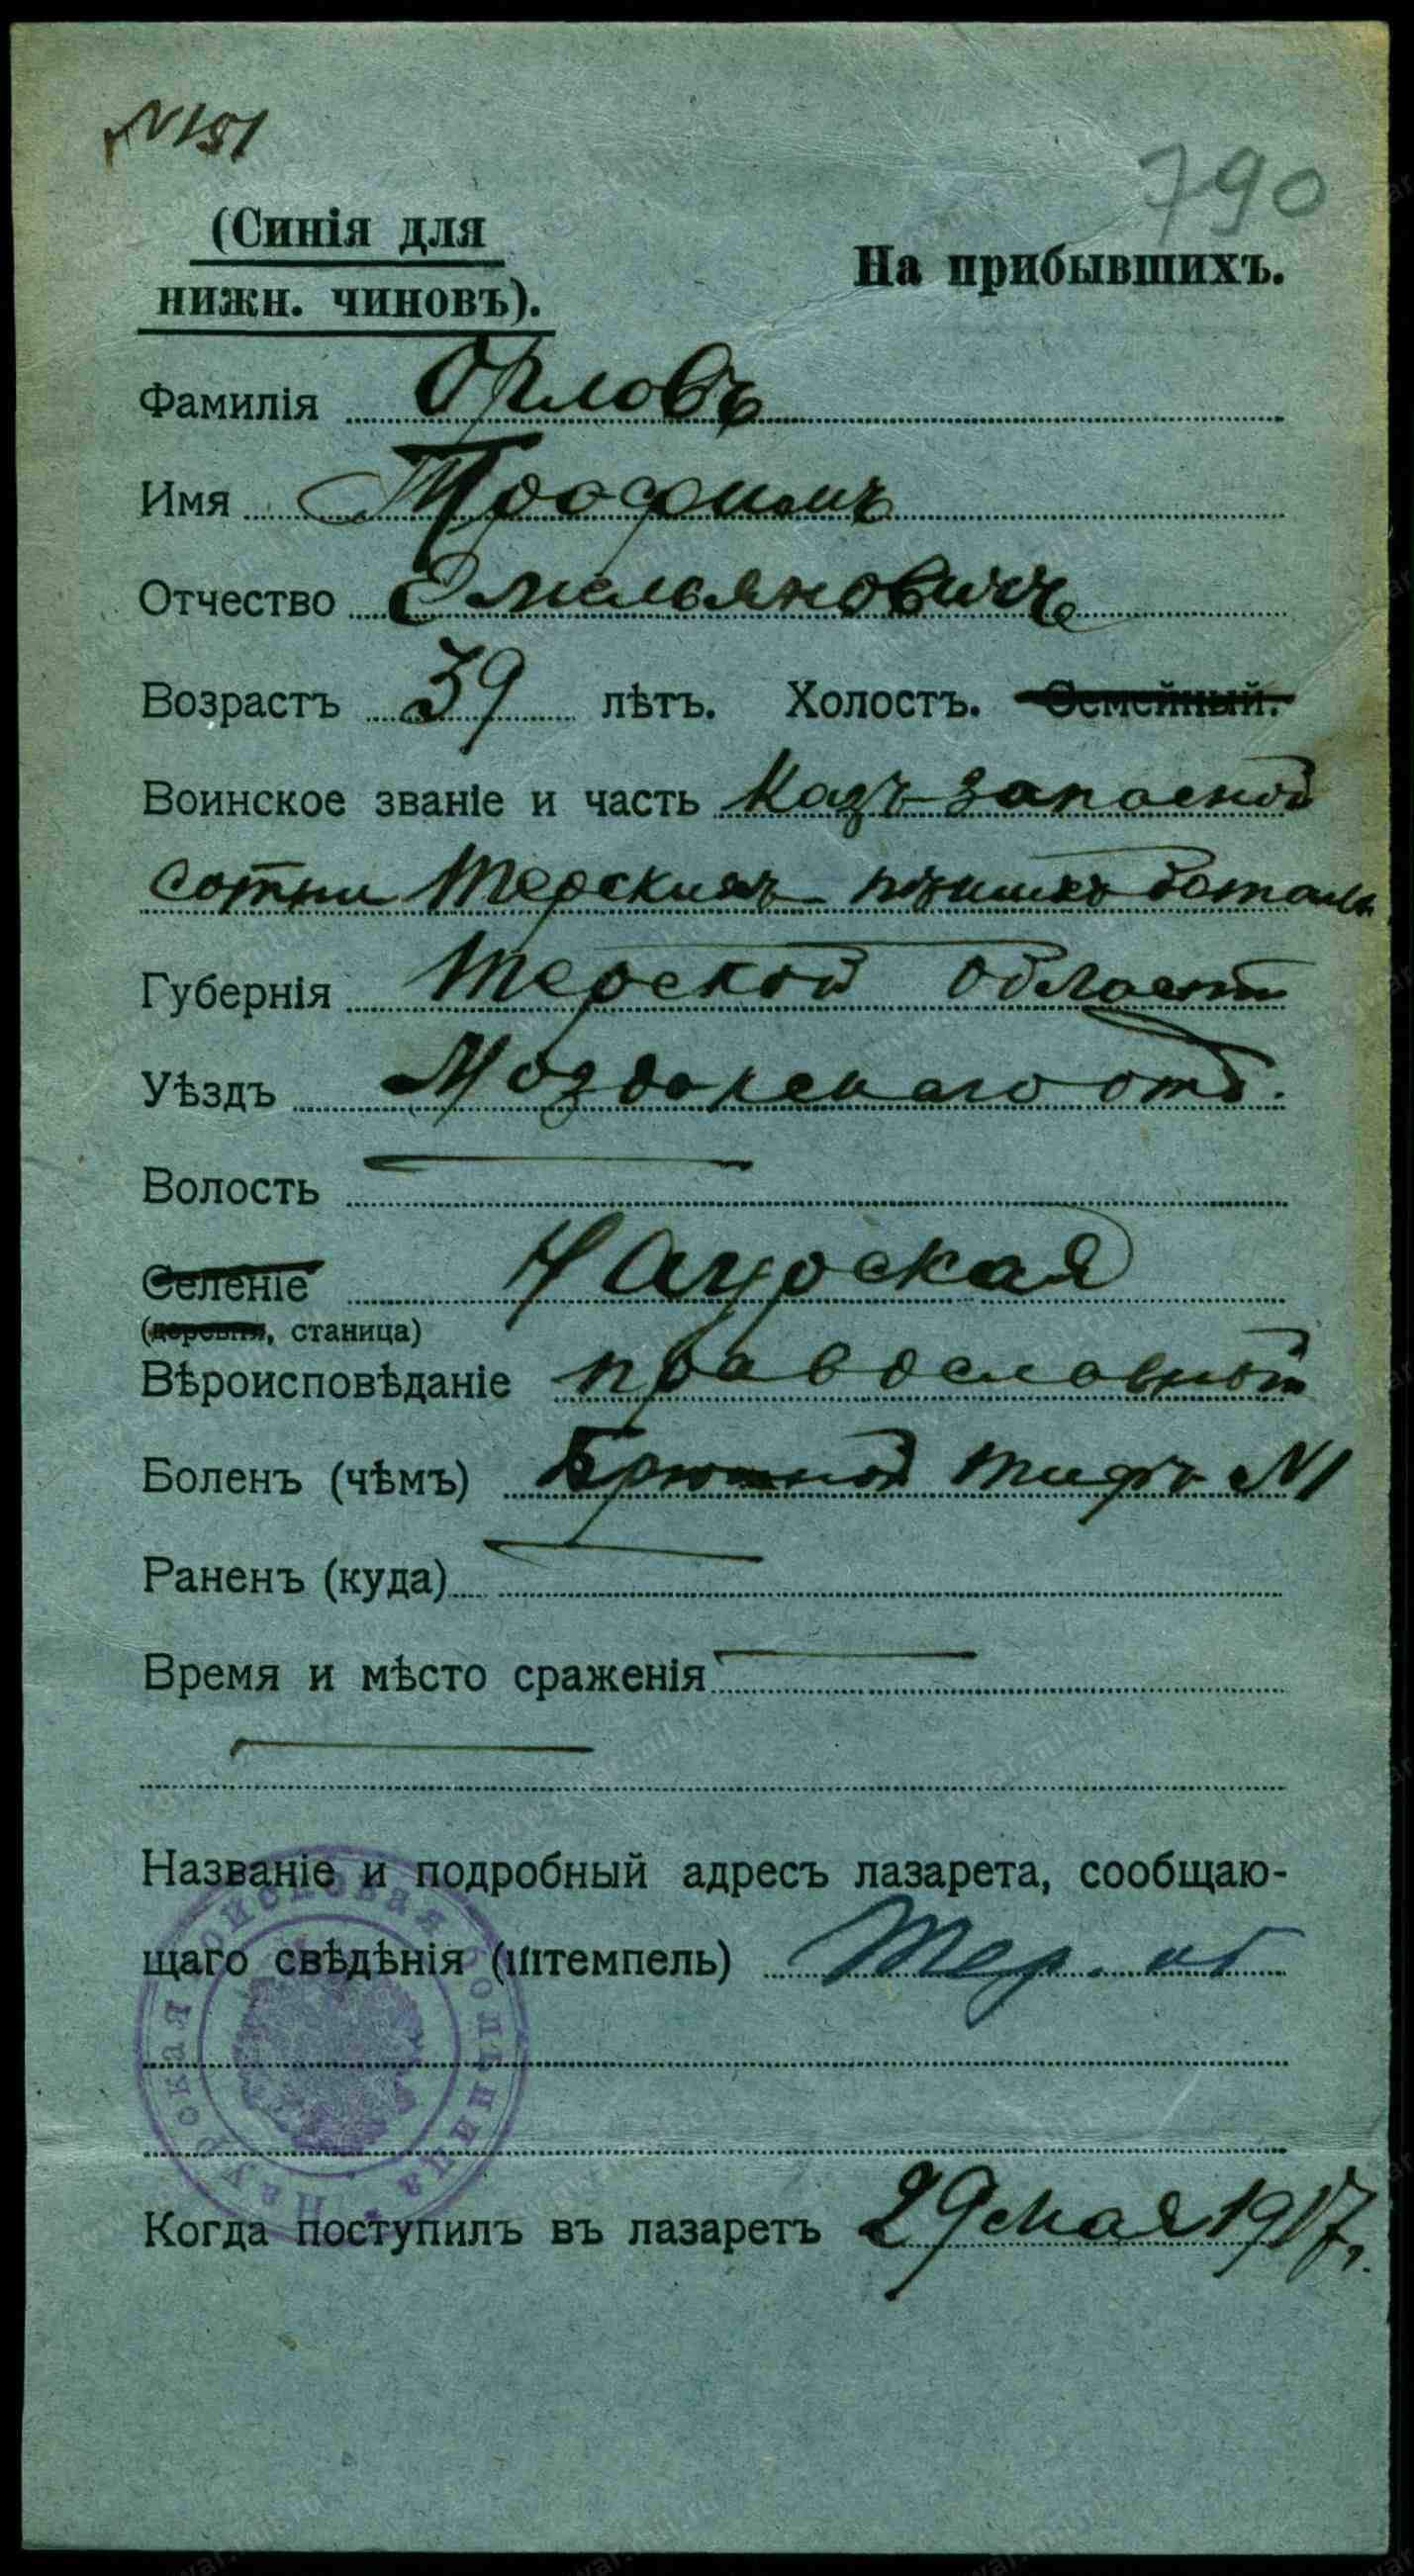 № 151
790
(Синія для
нижн. чиновъ).
На прибывшихъ.
Фамилія Орловъ
Имя Трофимъ
Отчество Емельяновичъ
Возрастъ 39 лѣтъ. Холостъ. Семейный.
Воинское званіе и часть Казъ запасной
сотни Терскихъ пѣшихъ баталь
Губернія Терской Области
Уѣздъ Моздокскаго отд.
Волость
Селеніе Наурская
(деревня, станица)
Вѣроисповѣданіе православный
Боленъ (чѣмъ) Брюшной тифъ №1
Раненъ (куда)
Время и мѣсто сраженія
Названіе и подробный адресъ лазарета, сообщаю-
щаго свѣдѣнія (штемпель) Тер. об
Наурская войсковая больница
Когда поступилъ въ лазаретъ 29 мая 1917 г.